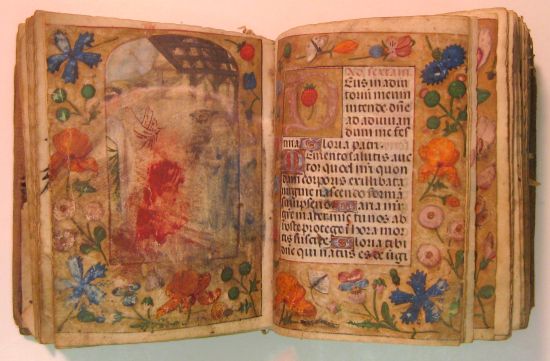 Ad sextam
Eus in adiu
toriū meum
intende dñe
ad adiuuan
dum me fes
tina Gloria patri.
Memento salutis auc
tor quod nr̃i quon
dam corporis exillibata
uirgine nascendo formā
sūpseris Maria mr̃
gr̃e mr̃ tu nos ab
hoste protege hora mor
tis suscipe Gloria tibi
dñe qui natus es de uĩgĩ